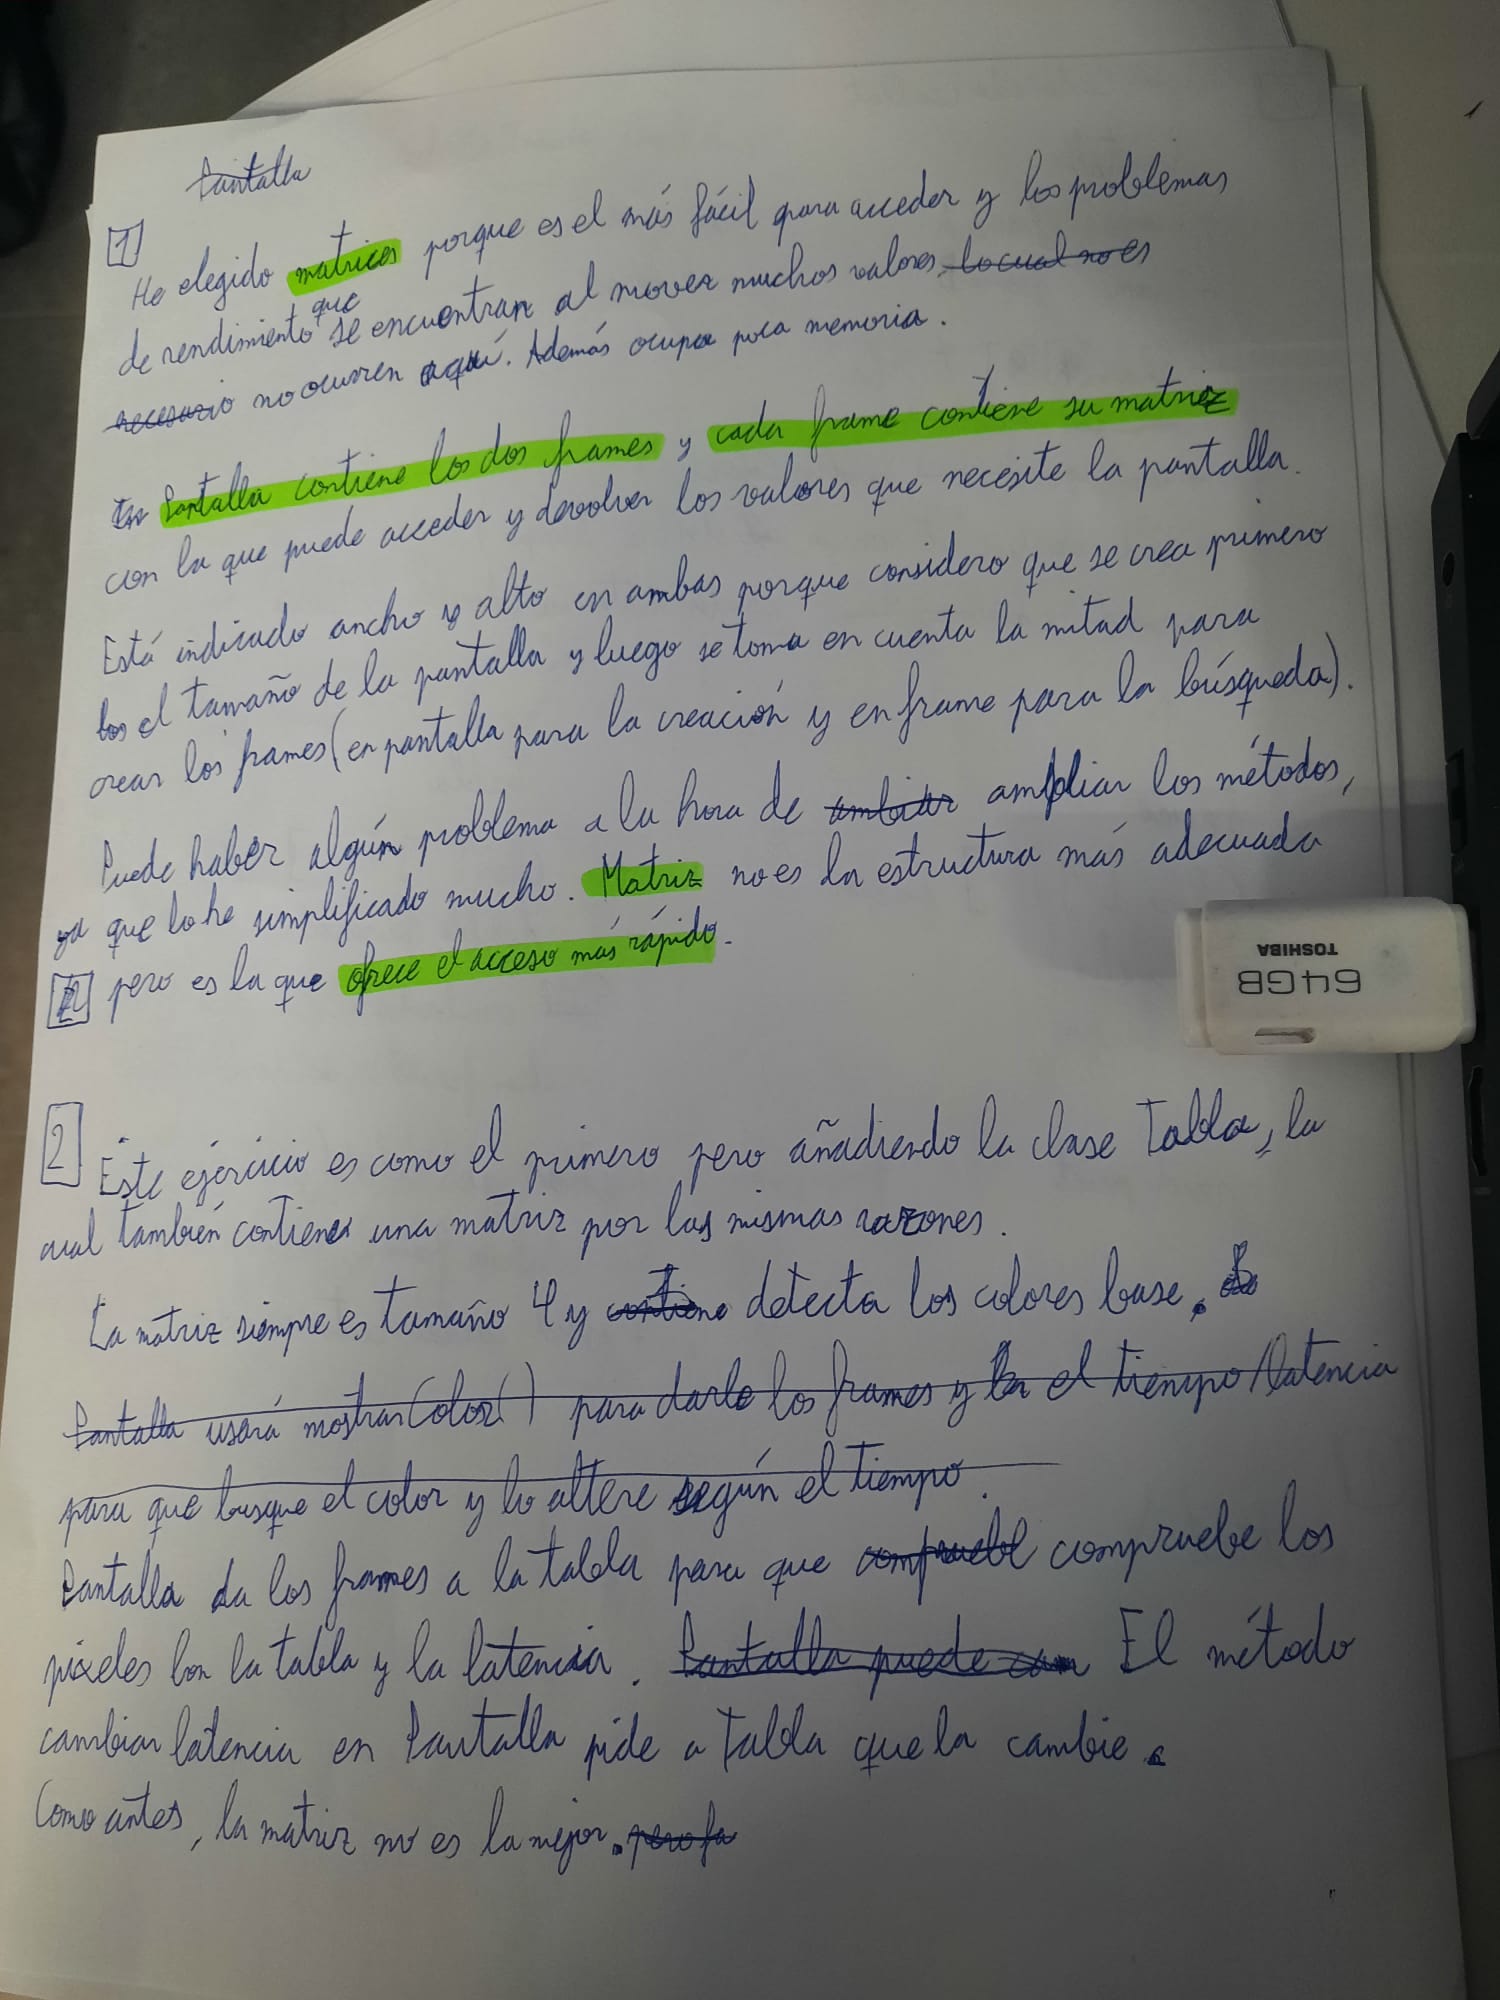 Pantalla
1
He elegido matrices porque es el más fácil para acceder y los problemas
de rendimiento que se encuentran al mover muchos valores, lo cual no es
necesario no ocurren aquí. Además ocupa poca memoria.
En Pantalla contiene los dos frames y cada frame contiene su matriz
con la que puede acceder y devolver los valores que necesite la pantalla.
Está indicado ancho y alto en ambas porque considero que se crea primero
los el tamaño de la pantalla y luego se toma en cuenta la mitad para
crear los frames (en pantalla para la creación y en frame para la búsqueda).
Puede haber algún problema a la hora de ambiar ampliar los métodos,
ya que lo he simplificado mucho. Matriz no es la estructura más adecuada
pero es la que ofrece el acceso más rápido.
TOSHIBA
64GB
2
Este ejercicio es como el primero pero añadiendo la clase Tabla, la
cual también contiene una matriz por las mismas razones.
La matriz siempre es tamaño 4 y contiene detecta los colores base.
Pantalla usará mostrarColor() para darle los frames y la el tiempo/latencia
para que busque el color y lo altere según el tiempo.
Pantalla da los frames a la tabla para que compruebe compruebe los
píxeles con la tabla y la latencia. Pantalla puede cam El método
cambiar latencia en Pantalla pide a Tabla que la cambie.
Como antes, la matriz no es la mejor. pero fa